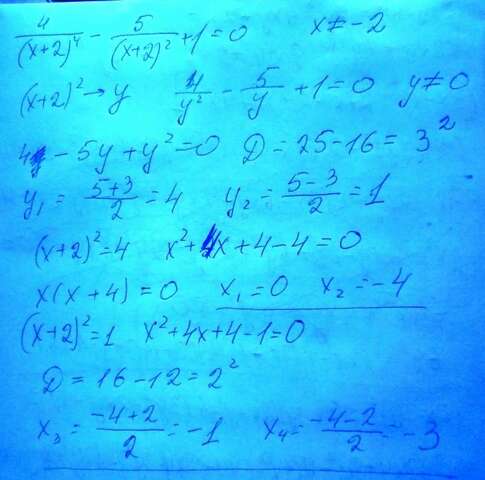 4/(x+2)⁴ - 5/(x+2)² + 1 = 0 x ≠ -2
(x+2)² → y 4/y² - 5/y + 1 = 0 y ≠ 0
4 - 5y + y² = 0 D = 25 - 16 = 3²
y₁ = (5+3)/2 = 4 y₂ = (5-3)/2 = 1
(x+2)² = 4 x² + 4x + 4 - 4 = 0
x(x+4) = 0 x₁ = 0 x₂ = -4
(x+2)² = 1 x² + 4x + 4 - 1 = 0
D = 16 - 12 = 2²
x₃ = (-4+2)/2 = -1 x₄ = (-4-2)/2 = -3